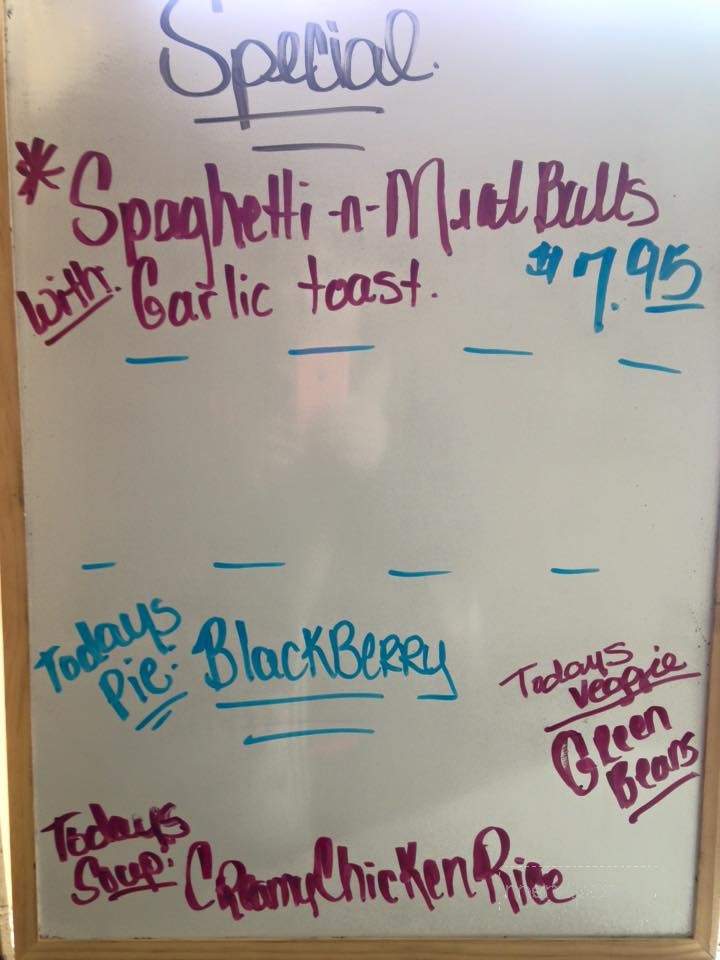 Special.
*Spaghetti-n-Meat Balls
with. Garlic toast. $7.95
Todays
Pie: BlackBerry
Todays
Veggie
Green
Beans
Todays
Soup: Creamy Chicken Rice